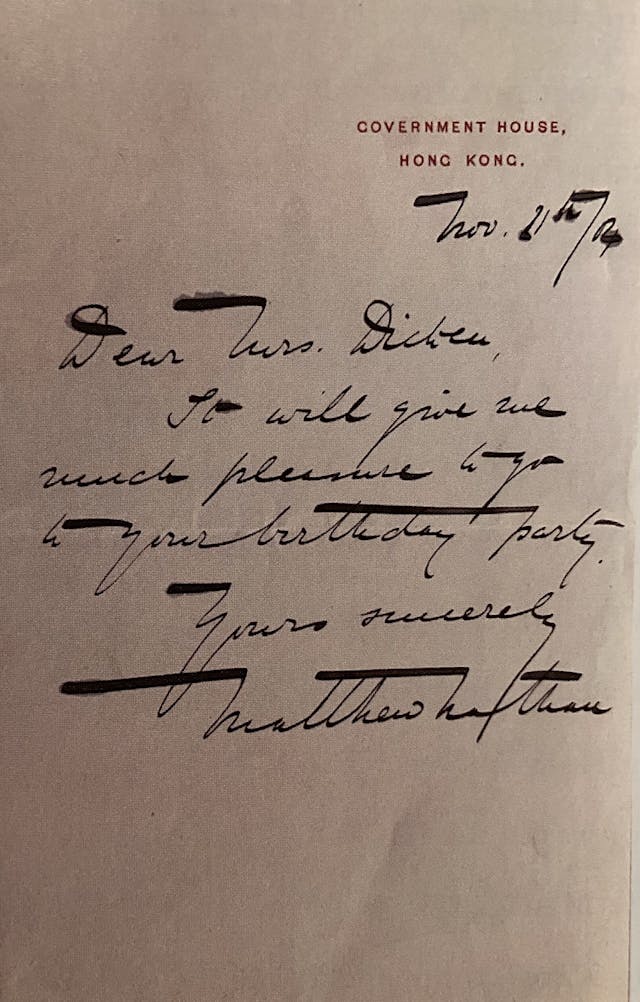 GOVERNMENT HOUSE,
HONG KONG.
Nov. 21th/04
Dear Mrs. Dicken,
It will give me
much pleasure to go
to your birthday party.
Yours sincerely
Matthew Nathan